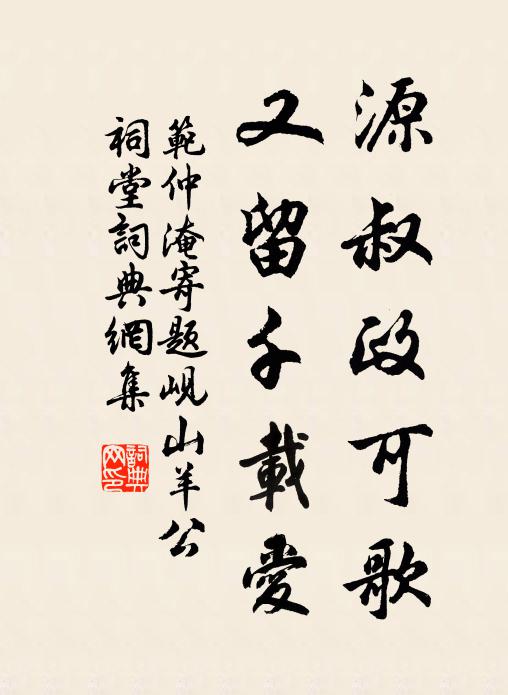 源叔政可歌
又留千載愛
範仲淹寄題峴山羊公
祠堂詞典網集
詞典
网印